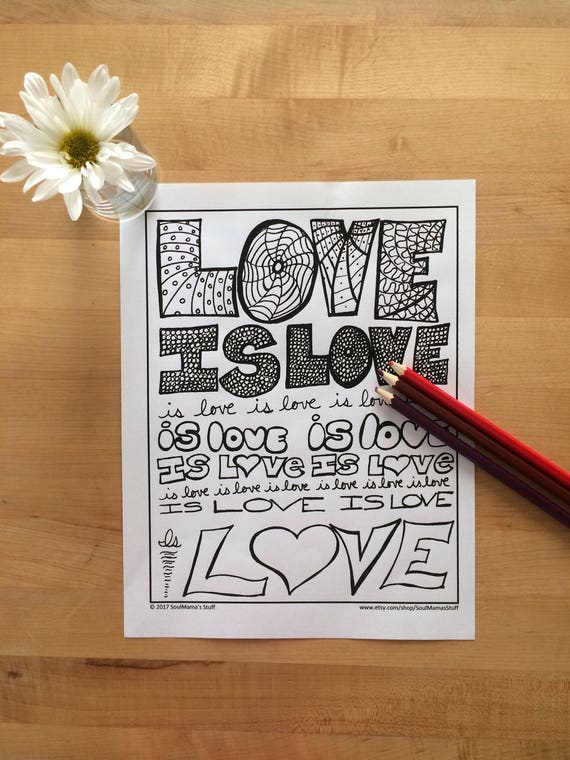 LOVE
IS LOVE
is love is love is love
is love is love
IS LOVE IS LOVE
is love is love is love is love is love is love
IS LOVE IS LOVE
Is LOVE
© 2017 SoulMama's Stuff www.etsy.com/shop/SoulMamasStuff